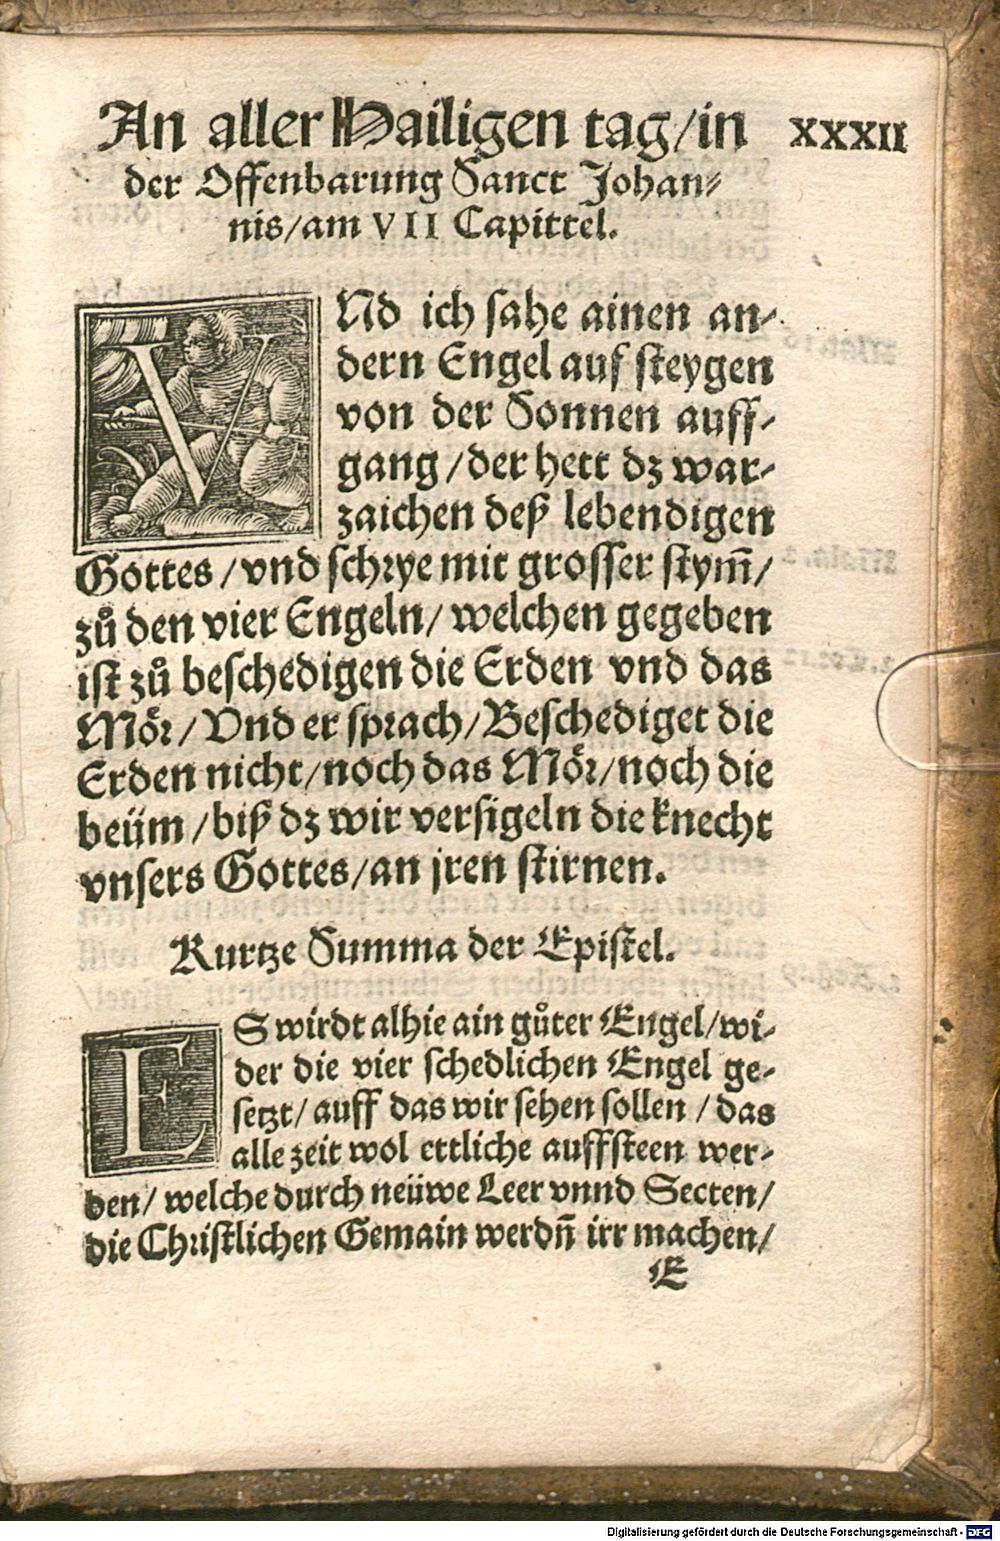 An aller Hailigen tag/in XXXII
der Offenbarung Sanct Johan⸗
nis/am VII Capittel.
VNd ich sahe ainen an⸗
dern Engel auf steygen
von der Sonnen auff⸗
gang/der hett dz war⸗
zaichen deß lebendigen
Gottes/vnd schrye mit grosser stym̃/
zů den vier Engeln/welchen gegeben
ist zů beschedigen die Erden vnd das
Moͤr/Vnd er sprach/Beschediget die
Erden nicht/noch das Moͤr/noch die
beüm/biß dz wir versigeln die knecht
vnsers Gottes/an jren stirnen.
Kurtze Summa der Epistel.
ES wirdt alhie ain gůter Engel/wi⸗
der die vier schedlichen Engel ge⸗
setzt/auff das wir sehen sollen/das
alle zeit wol ettliche auffsteen wer⸗
den/welche durch neüwe Leer vnnd Secten/
die Christlichen Gemain werdn̄ irr machen/
E
Digitalisierung gefördert durch die Deutsche Forschungsgemeinschaft - DFG